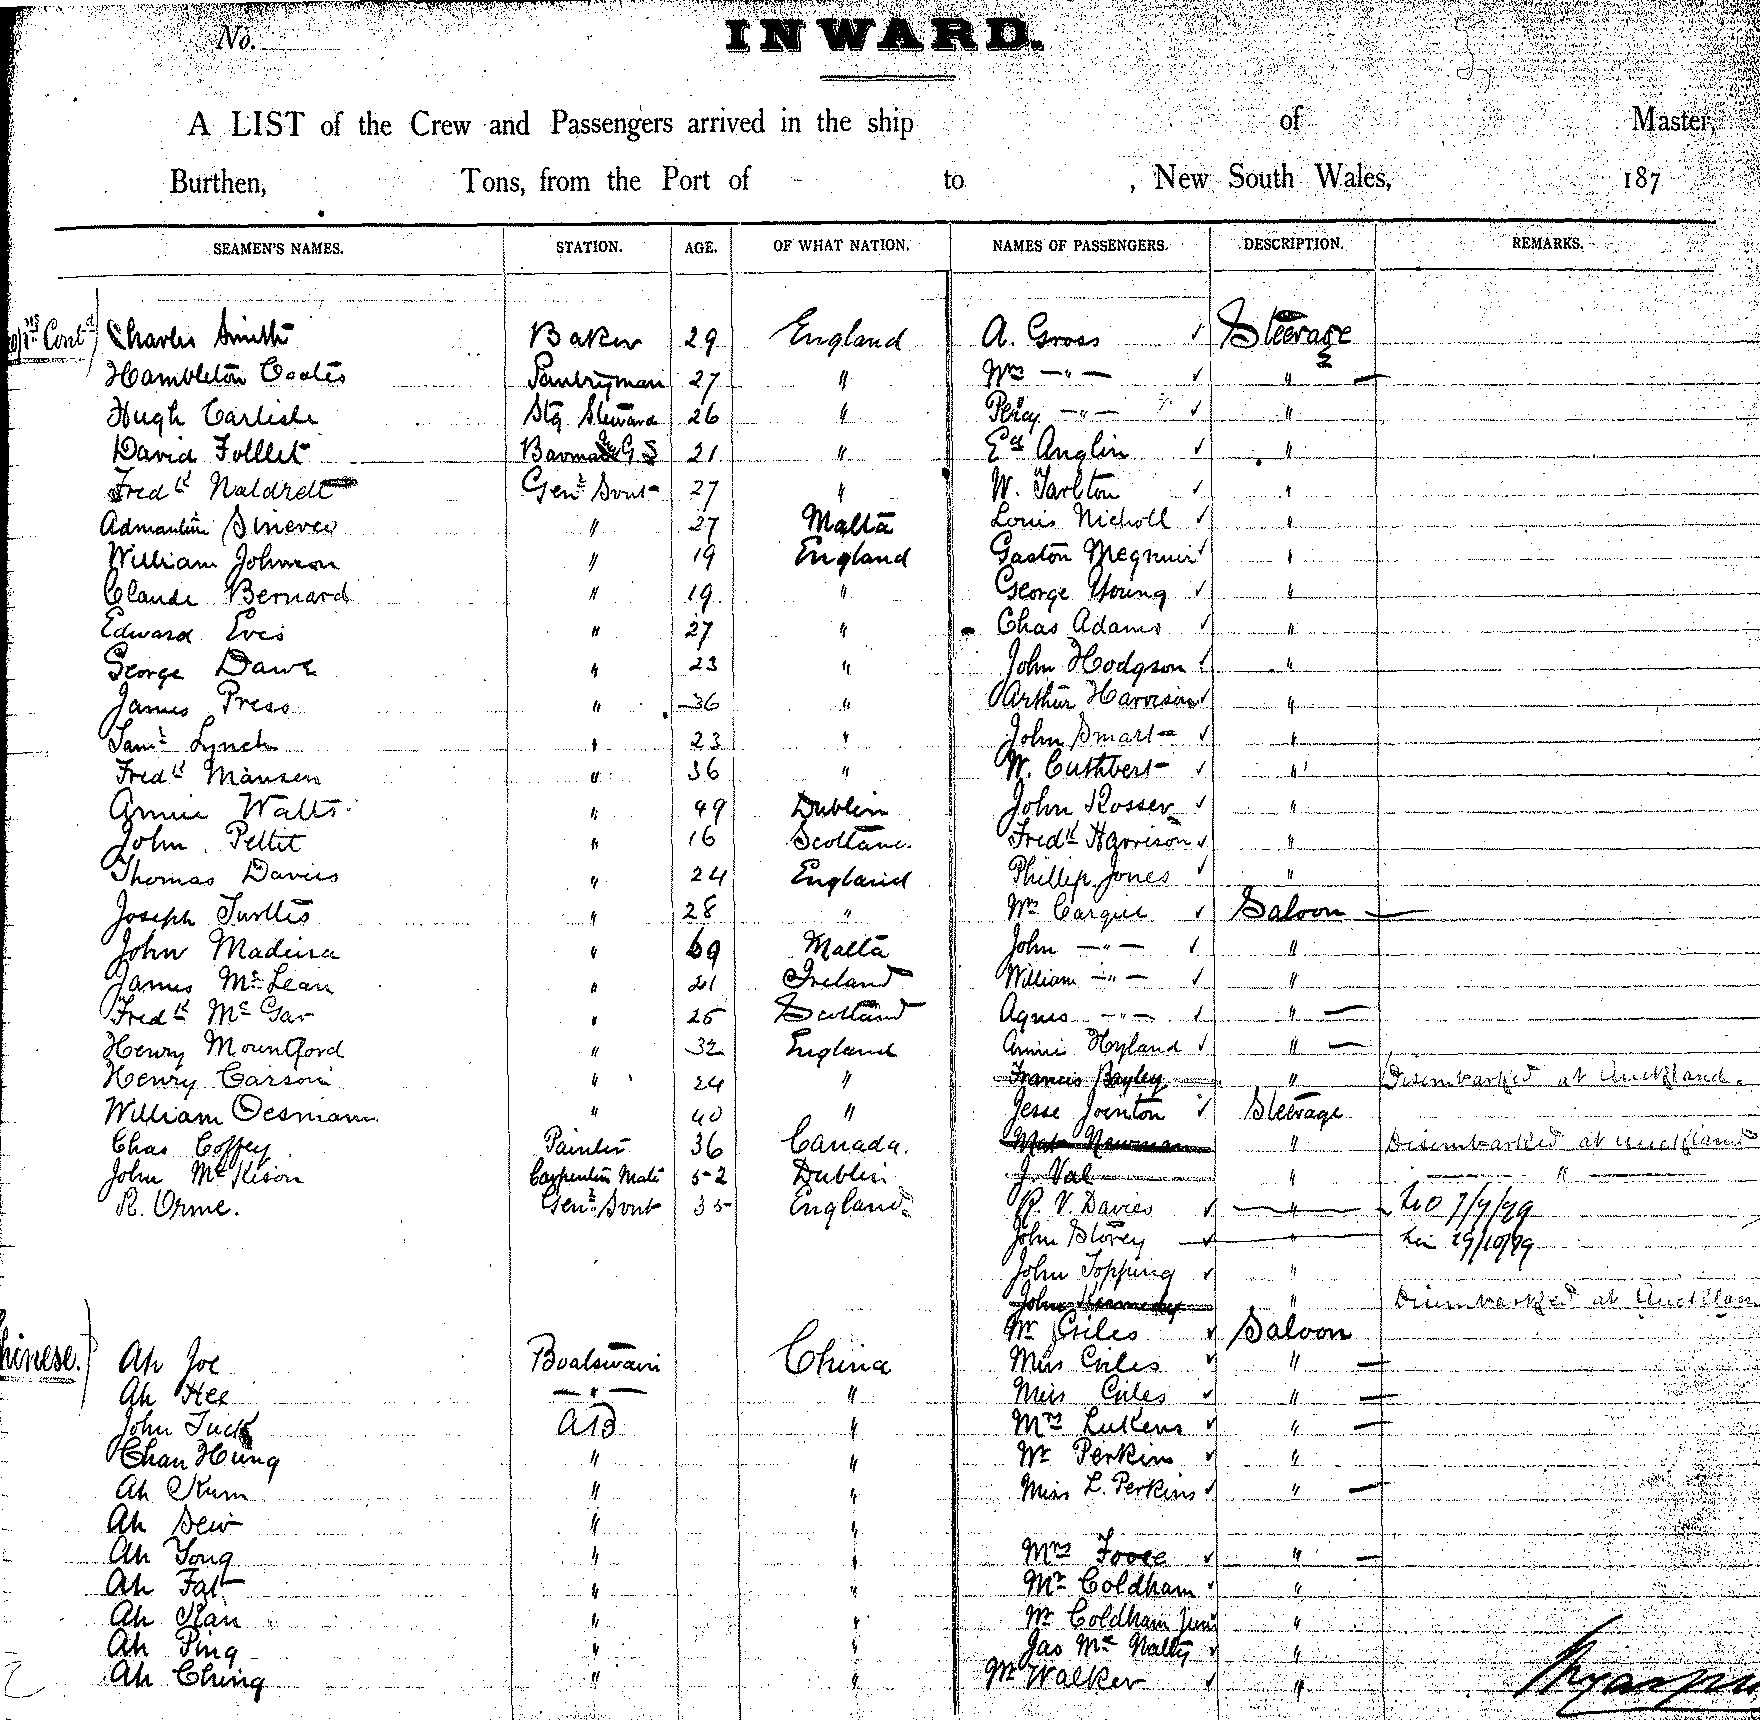 No.
INWARD.
A LIST of the Crew and Passengers arrived in the ship of Master,
Burthen, Tons, from the Port of to , New South Wales, 187
SEAMEN'S NAMES. STATION. AGE. OF WHAT NATION. NAMES OF PASSENGERS. DESCRIPTION. REMARKS.
Charles Smith Baker 29 England A. Gross Steerage
Hambleton Coates Pantryman 27 " Mrs — " — "
Hugh Carlisle Stg Steward 26 " Percy — " — "
David Folllet G S 21 " Anglin "
Fredk Naldrett Genl Servt 27 " W. Tarlton "
" 27 Malta Louis Nicholl "
William Johnson " 19 England Gaston "
Claude Bernard " 19 " George Young "
Edward Eves " 27 " Chas Adams "
George Dawe " 23 " John Hodgson "
James Press " 36 " Arthur Harrison "
Saml Lynch " 23 " John Smart "
Fredk Mansen " 36 " W. Cuthbert "
Annie Watts " 49 Dublin John Rosser "
John Pettit " 16 Scotland Fredk Harrison "
Thomas Davies " 24 England Phillip Jones "
Joseph " 28 " Mrs Cargill Saloon
John Madina " 69 Malta John — " — "
James McLean " 21 Ireland William — " — "
Fredk McGar " 25 Scotland Agnes — " — "
Henry Mountford " 32 England Annie Hyland "
Henry Carson " 24 " Francis Bayley " Disembarked at Auckland.
William Oesmann " 40 " Jesse Jointon Steerage
Chas Coffey Painter 36 Canada. Newman " Disembarked at Auckland
John McKison Carpenters Mate 52 Dublin J. Val " "
R. Orme. Genl Servt 35 England R. V. Davies " 7/9/79
John Storey " 29/10/79
John Topping "
John Kennedy " Disembarked at Auckland
Mr Giles Saloon
Chinese. Ah Joe Boatswain China Miss Giles "
Ah Hee — " — " Miss Giles "
John Tuck AB " Mrs Lukens "
Chan Hung " " Mr Perkins "
Ah Kum " " Miss L. Perkins "
Ah Sew " "
Ah Tong " " Mrs "
Ah Fat " " Mr Coldham "
Ah Kan " " Mr Coldham Junr "
Ah Ping " " Jas McNalty "
Ah Ching " " Mr Walker "